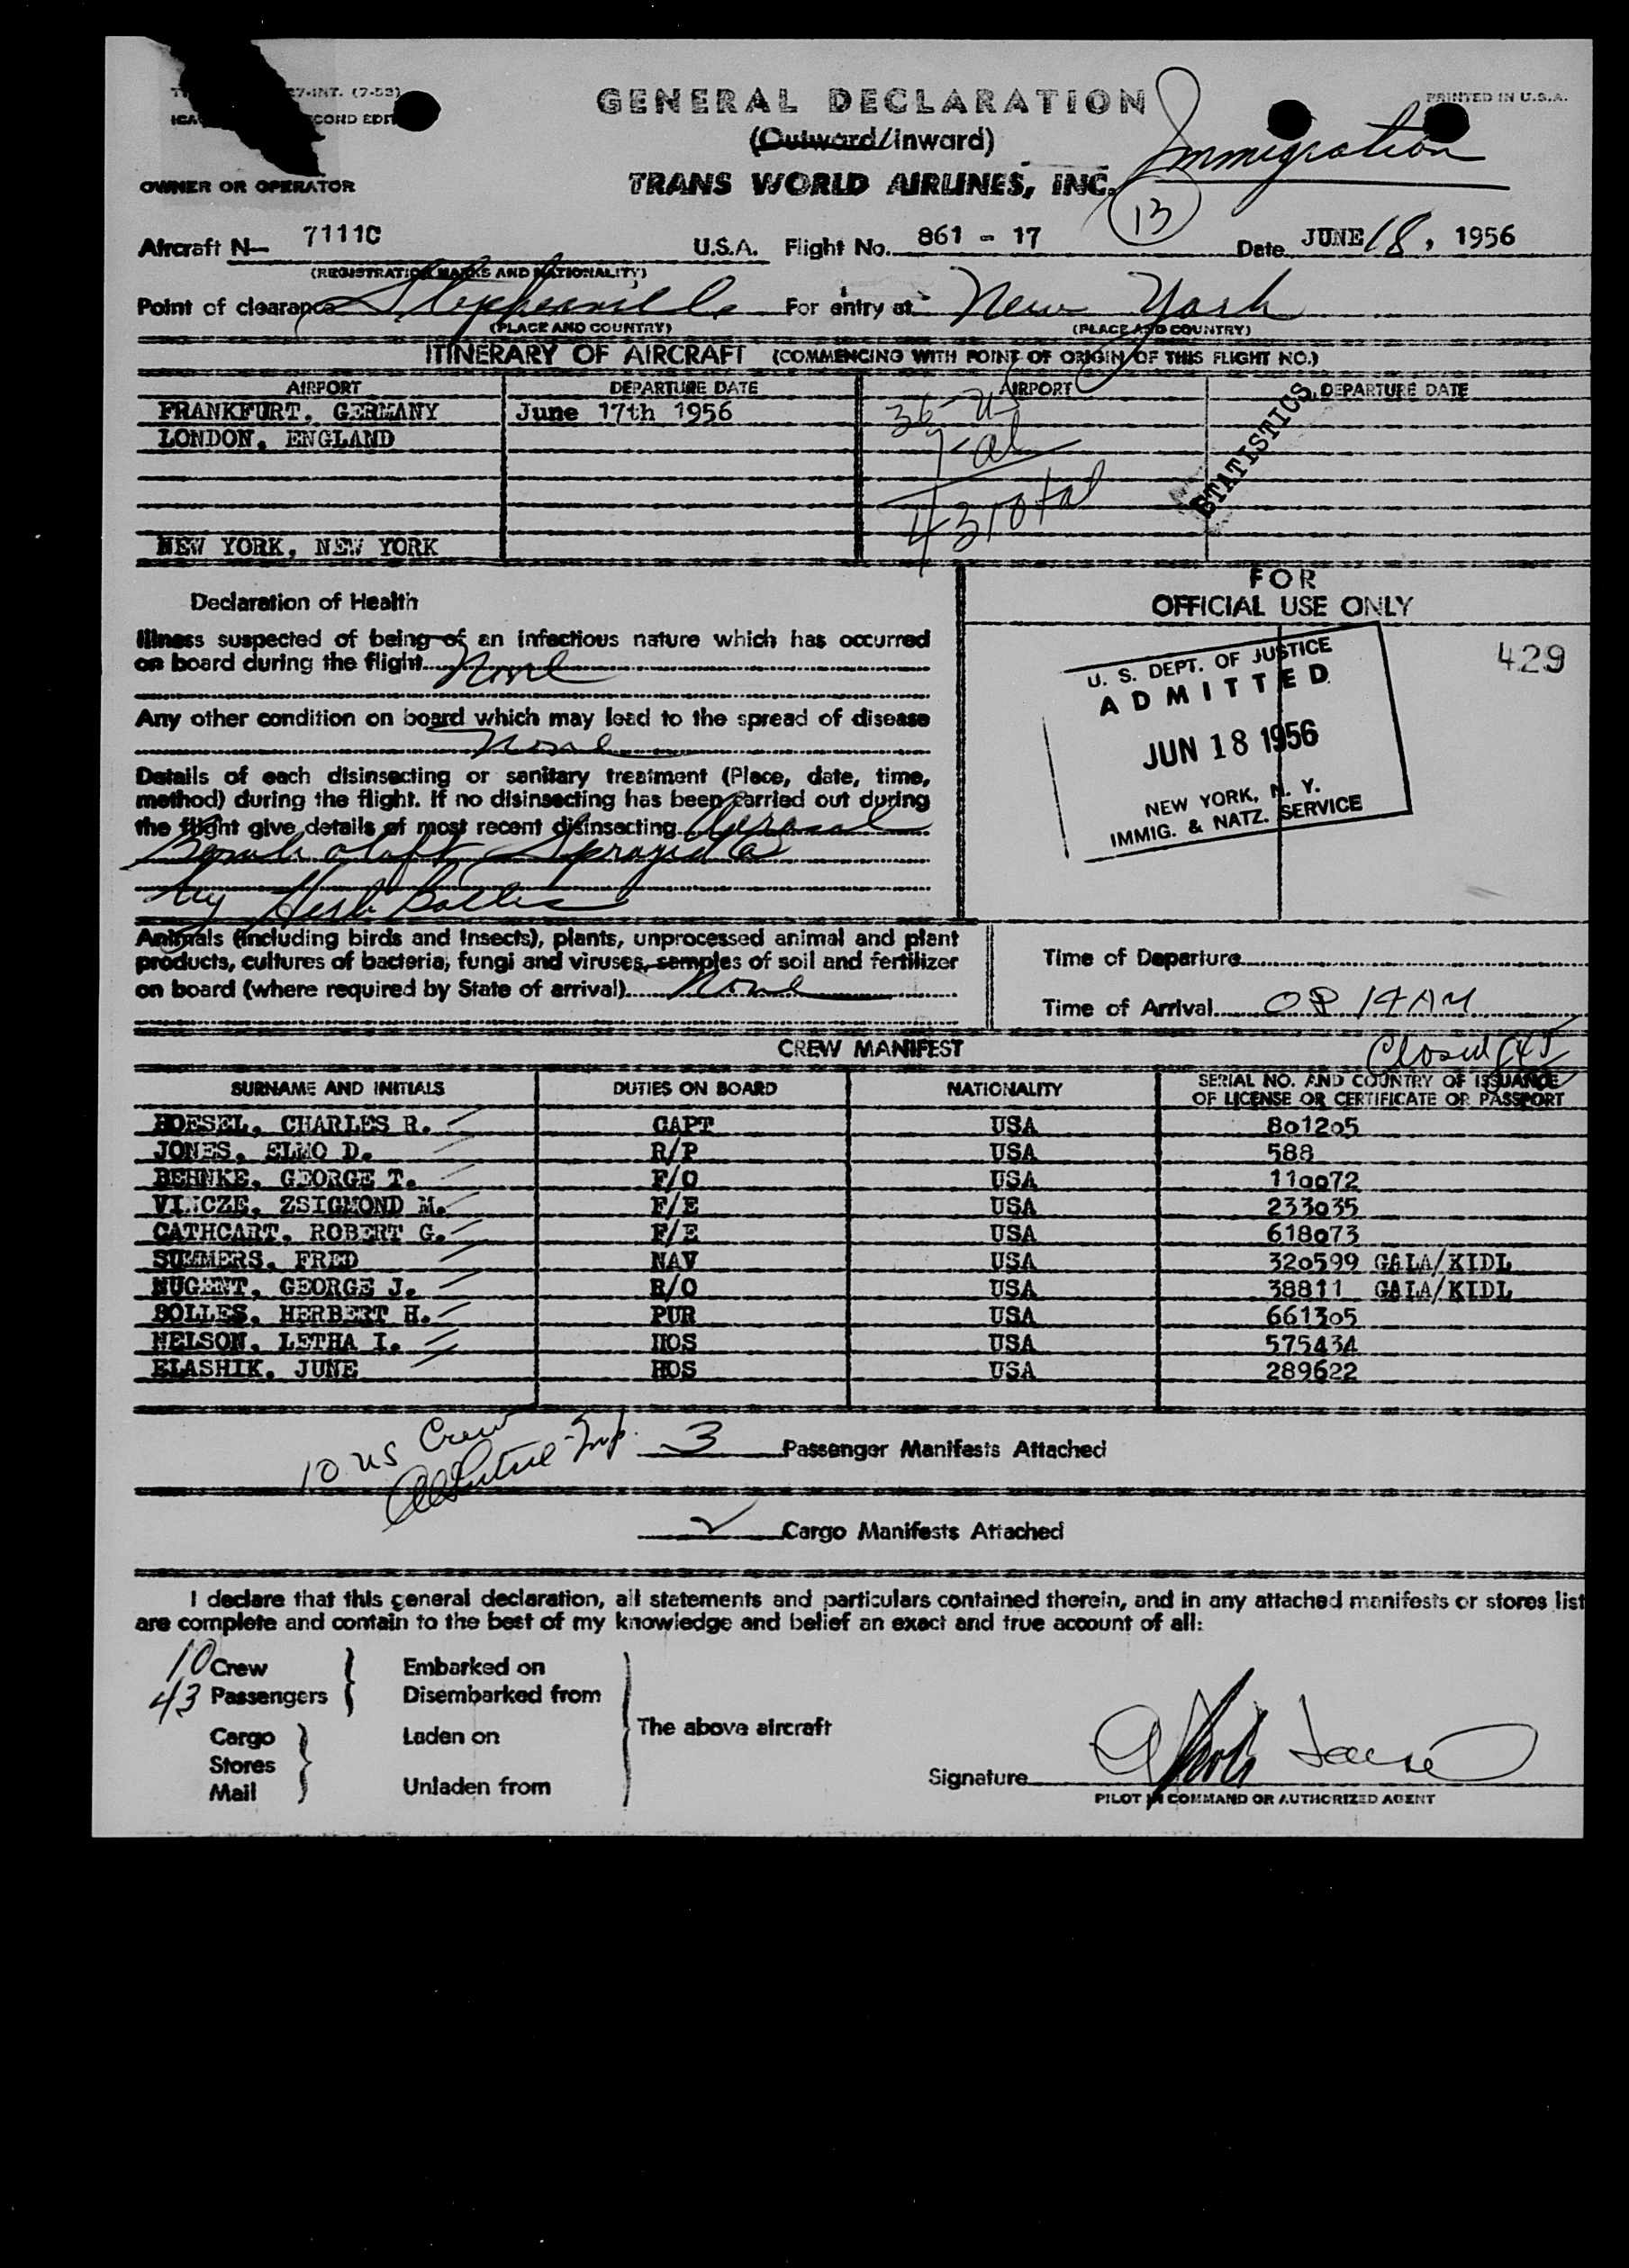 7-INT. (7-53)
GENERAL DECLARATION
PRINTED IN U.S.A.
(Outward/Inward)
Immigration
OWNER OR OPERATOR
TRANS WORLD AIRLINES, INC.
13
Aircraft N- 7111C U.S.A. Flight No. 861 - 17 Date JUNE 18, 1956
(REGISTRATION MARKS AND NATIONALITY)
Point of clearance For entry at New York
(PLACE AND COUNTRY) (PLACE AND COUNTRY)
ITINERARY OF AIRCRAFT (COMMENCING WITH POINT OF ORIGIN OF THIS FLIGHT NO.)
AIRPORT DEPARTURE DATE AIRPORT DEPARTURE DATE
FRANKFURT, GERMANY June 17th 1956
LONDON, ENGLAND
36-US
7-al
43 Total
STATISTICS
NEW YORK, NEW YORK
FOR
OFFICIAL USE ONLY
Declaration of Health
Illness suspected of being of an infectious nature which has occurred
on board during the flight None
Any other condition on board which may lead to the spread of disease
None
Details of each disinsecting or sanitary treatment (Place, date, time,
method) during the flight. If no disinsecting has been carried out during
the flight give details of most recent disinsecting Aerosol
Bomb Sprayed
by Herb Bolles
U. S. DEPT. OF JUSTICE
ADMITTED
JUN 18 1956
NEW YORK, N. Y.
IMMIG. & NATZ. SERVICE
429
Animals (including birds and insects), plants, unprocessed animal and plant
products, cultures of bacteria, fungi and viruses, samples of soil and fertilizer
on board (where required by State of arrival) None
Time of Departure
Time of Arrival 08 14 AM
CREW MANIFEST
Closed
SURNAME AND INITIALS DUTIES ON BOARD NATIONALITY SERIAL NO. AND COUNTRY OF ISSUANCE OF LICENSE OR CERTIFICATE OR PASSPORT
HOESEL, CHARLES R. CAPT USA 801205
JONES, ELMO D. R/P USA 588
BEHNKE, GEORGE T. F/O USA 110072
VINCZE, ZSIGMOND M. F/E USA 233035
CATHCART, ROBERT G. F/E USA 618073
SUMMERS, FRED NAV USA 320599 GALA/KIDL
NUGENT, GEORGE J. R/O USA 38811 GALA/KIDL
BOLLES, HERBERT H. PUR USA 661305
NELSON, LETHA I. HOS USA 575434
ELASHIK, JUNE HOS USA 289622
10 US Crew
3 Passenger Manifests Attached
Cargo Manifests Attached
I declare that this general declaration, all statements and particulars contained therein, and in any attached manifests or stores list
are complete and contain to the best of my knowledge and belief an exact and true account of all:
10 Crew Embarked on
43 Passengers Disembarked from
The above aircraft
Cargo Laden on
Stores
Mail Unladen from
Signature
PILOT IN COMMAND OR AUTHORIZED AGENT